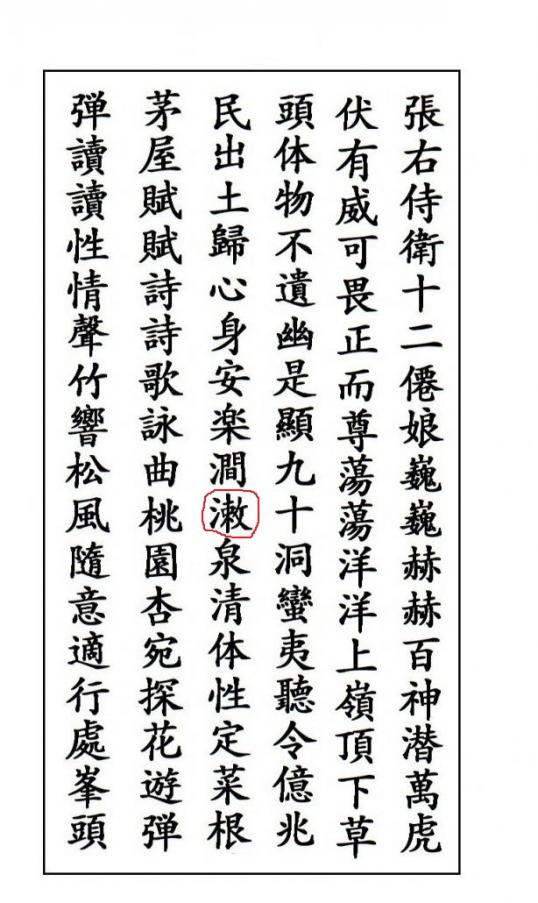 張右侍衛十二僊娘巍巍赫赫百神潜萬虎
伏有威可畏正而尊蕩蕩洋洋上嶺頂下草
頭体物不遺幽是顯九十洞蠻夷聽令億兆
民出土歸心身安楽澗潄泉清体性定菜根
茅屋賦賦詩詩歌詠曲桃園杏宛探花遊弾
弾讀讀性情聲竹響松風隨意適行處峯頭